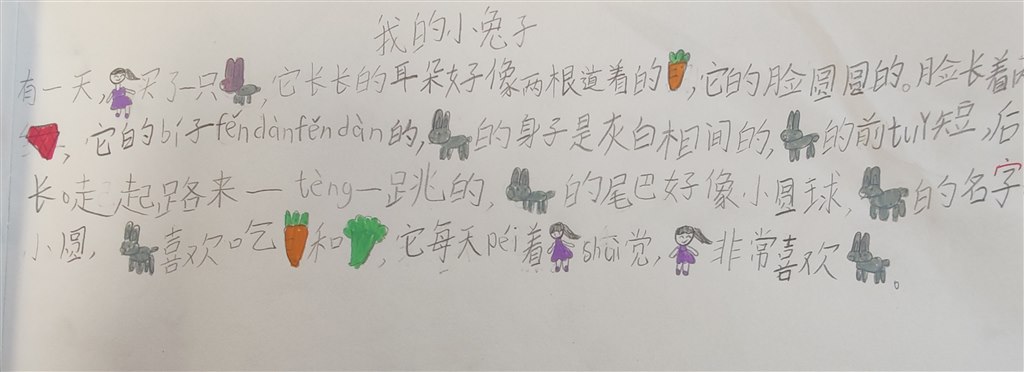 我的小兔子
有一天,买了一只,它长长的耳朵好像两根道着的,它的脸圆圆的。脸长着两
它的bí子fěndànfěndàn的,的身子是灰白相间的,的前tuǐ短,后
长。走起路来一tèng一跳的,的尾巴好像小圆球,的名字
小圆,喜欢吃和,它每天péi着shuì觉,非常喜欢。